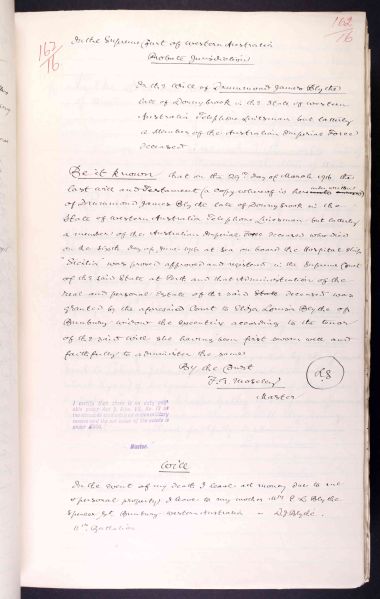 162/16
162/16
In the Supreme Court of Western Australia
Probate Jurisdiction
In the Will of Drummond James Blythe
late of Donnybrook in the State of Western
Australia Telephone Linesman but latterly
a Member of the Australian Imperial Force
deceased
Be it known that on the 29th day of March 1916 the
last will and Testament (a copy whereof is hereunder written)
of Drummond James Blythe late of Donnybrook in the
State of Western Australia Telephone Linesman but latterly
a member of the Australian Imperial Force deceased who died
on the sixth day of June 1915 at Sea on board the Hospital Ship
Sicilia was proved approved and registered in the Supreme Court
of the said State at Perth and that Administration of the
real and personal Estate of the said deceased was
granted by the aforesaid Court to Eliza Louisa Blythe of
Bunbury widow the executrix according to the tenor
of the said Will she having been first sworn well and
faithfully to administer the same
By the Court
F. A. Moseley
Master
LS
I certify that there is no duty pay-
able
Master.
Will
In the event of my death I leave all money due to me
& personal property I leave to my mother Mrs E L Blythe
Spencer St Bunbury Western Australia - D J Blythe
11th Battalion